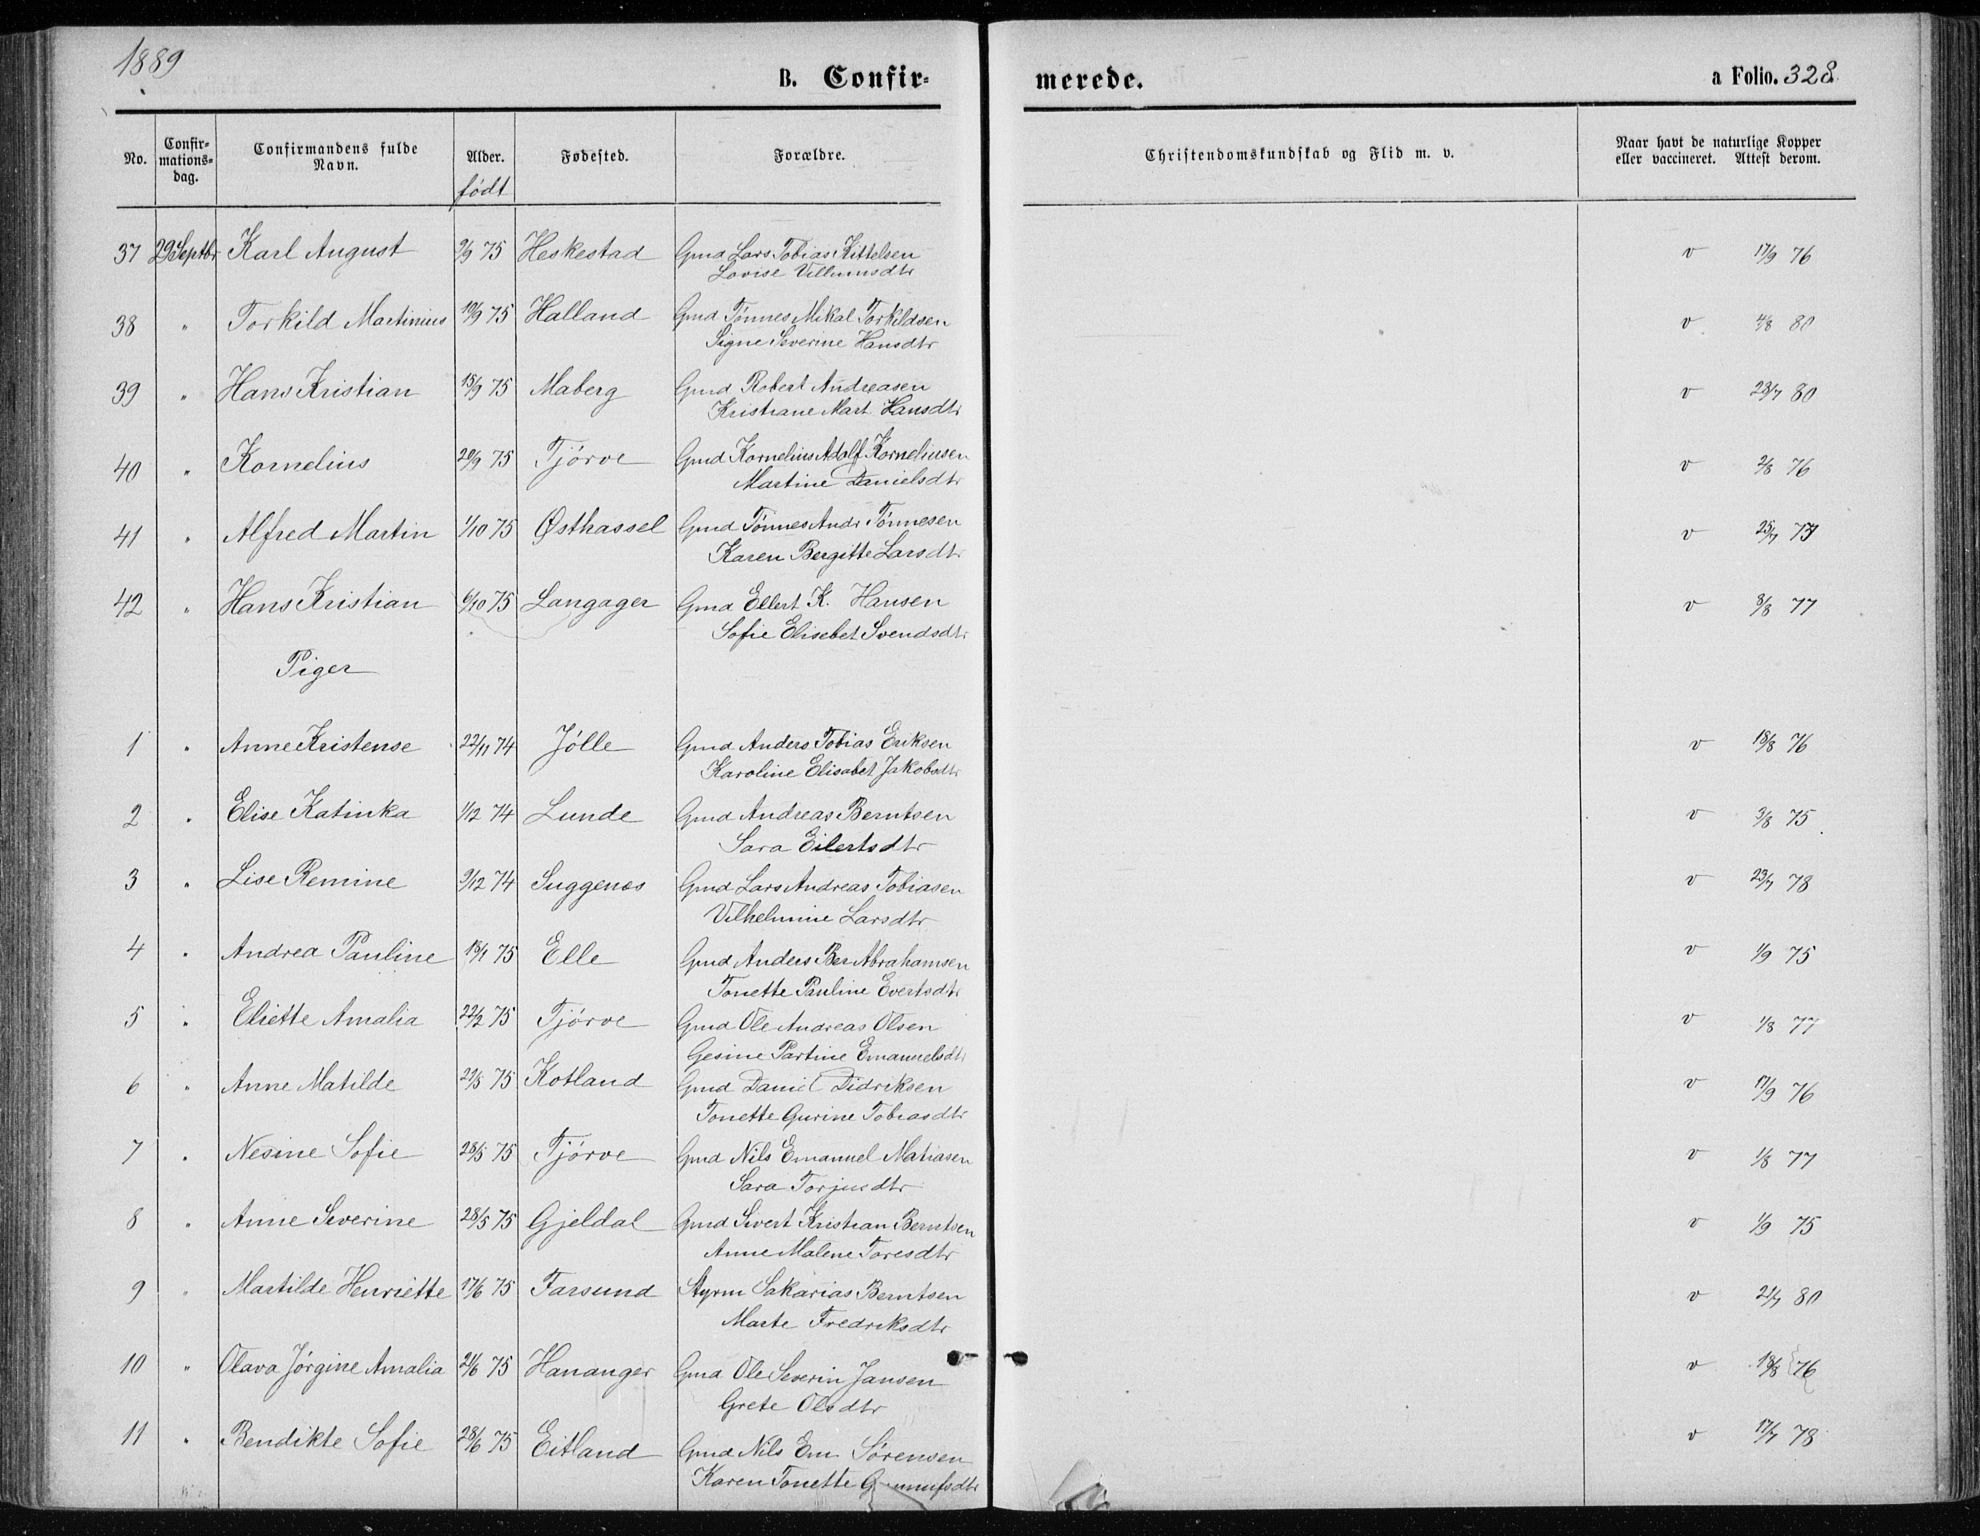 1889
B. Confir-
merede.
a Folio. 328
No. Confir-mations-dag. Confirmandens fulde Navn. Alder. født Fødested. Forældre. Christendomskundskab og Flid m. v. Naar havt de naturlige Kopper eller vaccineret. Attest derom.
37 29 Septbr Karl August 9/9 75 Heskestad Gmd Lars Tobias Kittelsen v 17/9 76
Lovise Villumsdtr
38 " Torkild Martinius 10/9 75 Halland Gmd Tønnes Mikal Torkildsen v 4/8 80
Signe Severine Hansdtr
39 " Hans Kristian 15/9 75 Maberg Gmd Robert Andreasen v 23/7 80
Kristiane Mart. Hansdtr
40 " Kornelius 20/9 75 Tjørve Gmd Kornelius Adolf Korneliusen v 2/8 76
Martine Danielsdtr
41 " Alfred Martin 1/10 75 Østhassel Gmd Tønnes Andr Tønnesen v 25/7
Karen Bergitte Larsdtr
42 " Hans Kristian 6/10 75 Langager Gmd Ellert K. Hansen v 8/8 77
Sofie Elisebet Svendsdtr
Piger
1 " Anne Kristense 22/11 74 Jølle Gmd Anders Tobias Eriksen v 18/8 76
Karoline Elisabet Jakobsdtr
2 " Elise Katinka 1/12 74 Lunde Gmd Andreas Berntsen v 3/8 75
Sara Eilertsdtr
3 " Lise Remine 9/12 74 Suggenes Gmd Lars Andreas Tobiasen v 23/7 78
Vilhelmine Larsdtr
4 " Andrea Pauline 18/1 75 Elle Gmd Anders Ber Abrahamsen v 1/9 75
Tonette Pauline Evertsdtr
5 " Eliette Amalia 22/2 75 Tjørve Gmd Ole Andreas Olsen v 1/8 77
Gesine Partine Emanuelsdtr
6 " Anne Matilde 21/5 75 Kotland Gmd Daniel Didriksen v 17/9 76
Tonette Gurine Tobiasdtr
7 " Nesine Sofie 28/5 75 Tjørve Gmd Nils Emanuel Matiasen v 1/8 77
Sara Torjusdtr
8 " Anne Severine 28/5 75 Gjeldal Gmd Sivert Kristian Berntsen v 1/9 75
Anne Malene Toresdtr
9 " Martilde Henriette 17/6 75 Farsund Styrm Sakarias Berntsen v 21/7 80
Marte Fredriksdtr
10 " Olava Jørgine Amalia 21/6 75 Hananger Gmd Ole Severin Jansen v 18/8 76
Grete Olsdtr
11 " Bendikte Sofie 28/6 75 Eitland Gmd Nils Em. Sørensen v 17/7 78
Karen Tonette